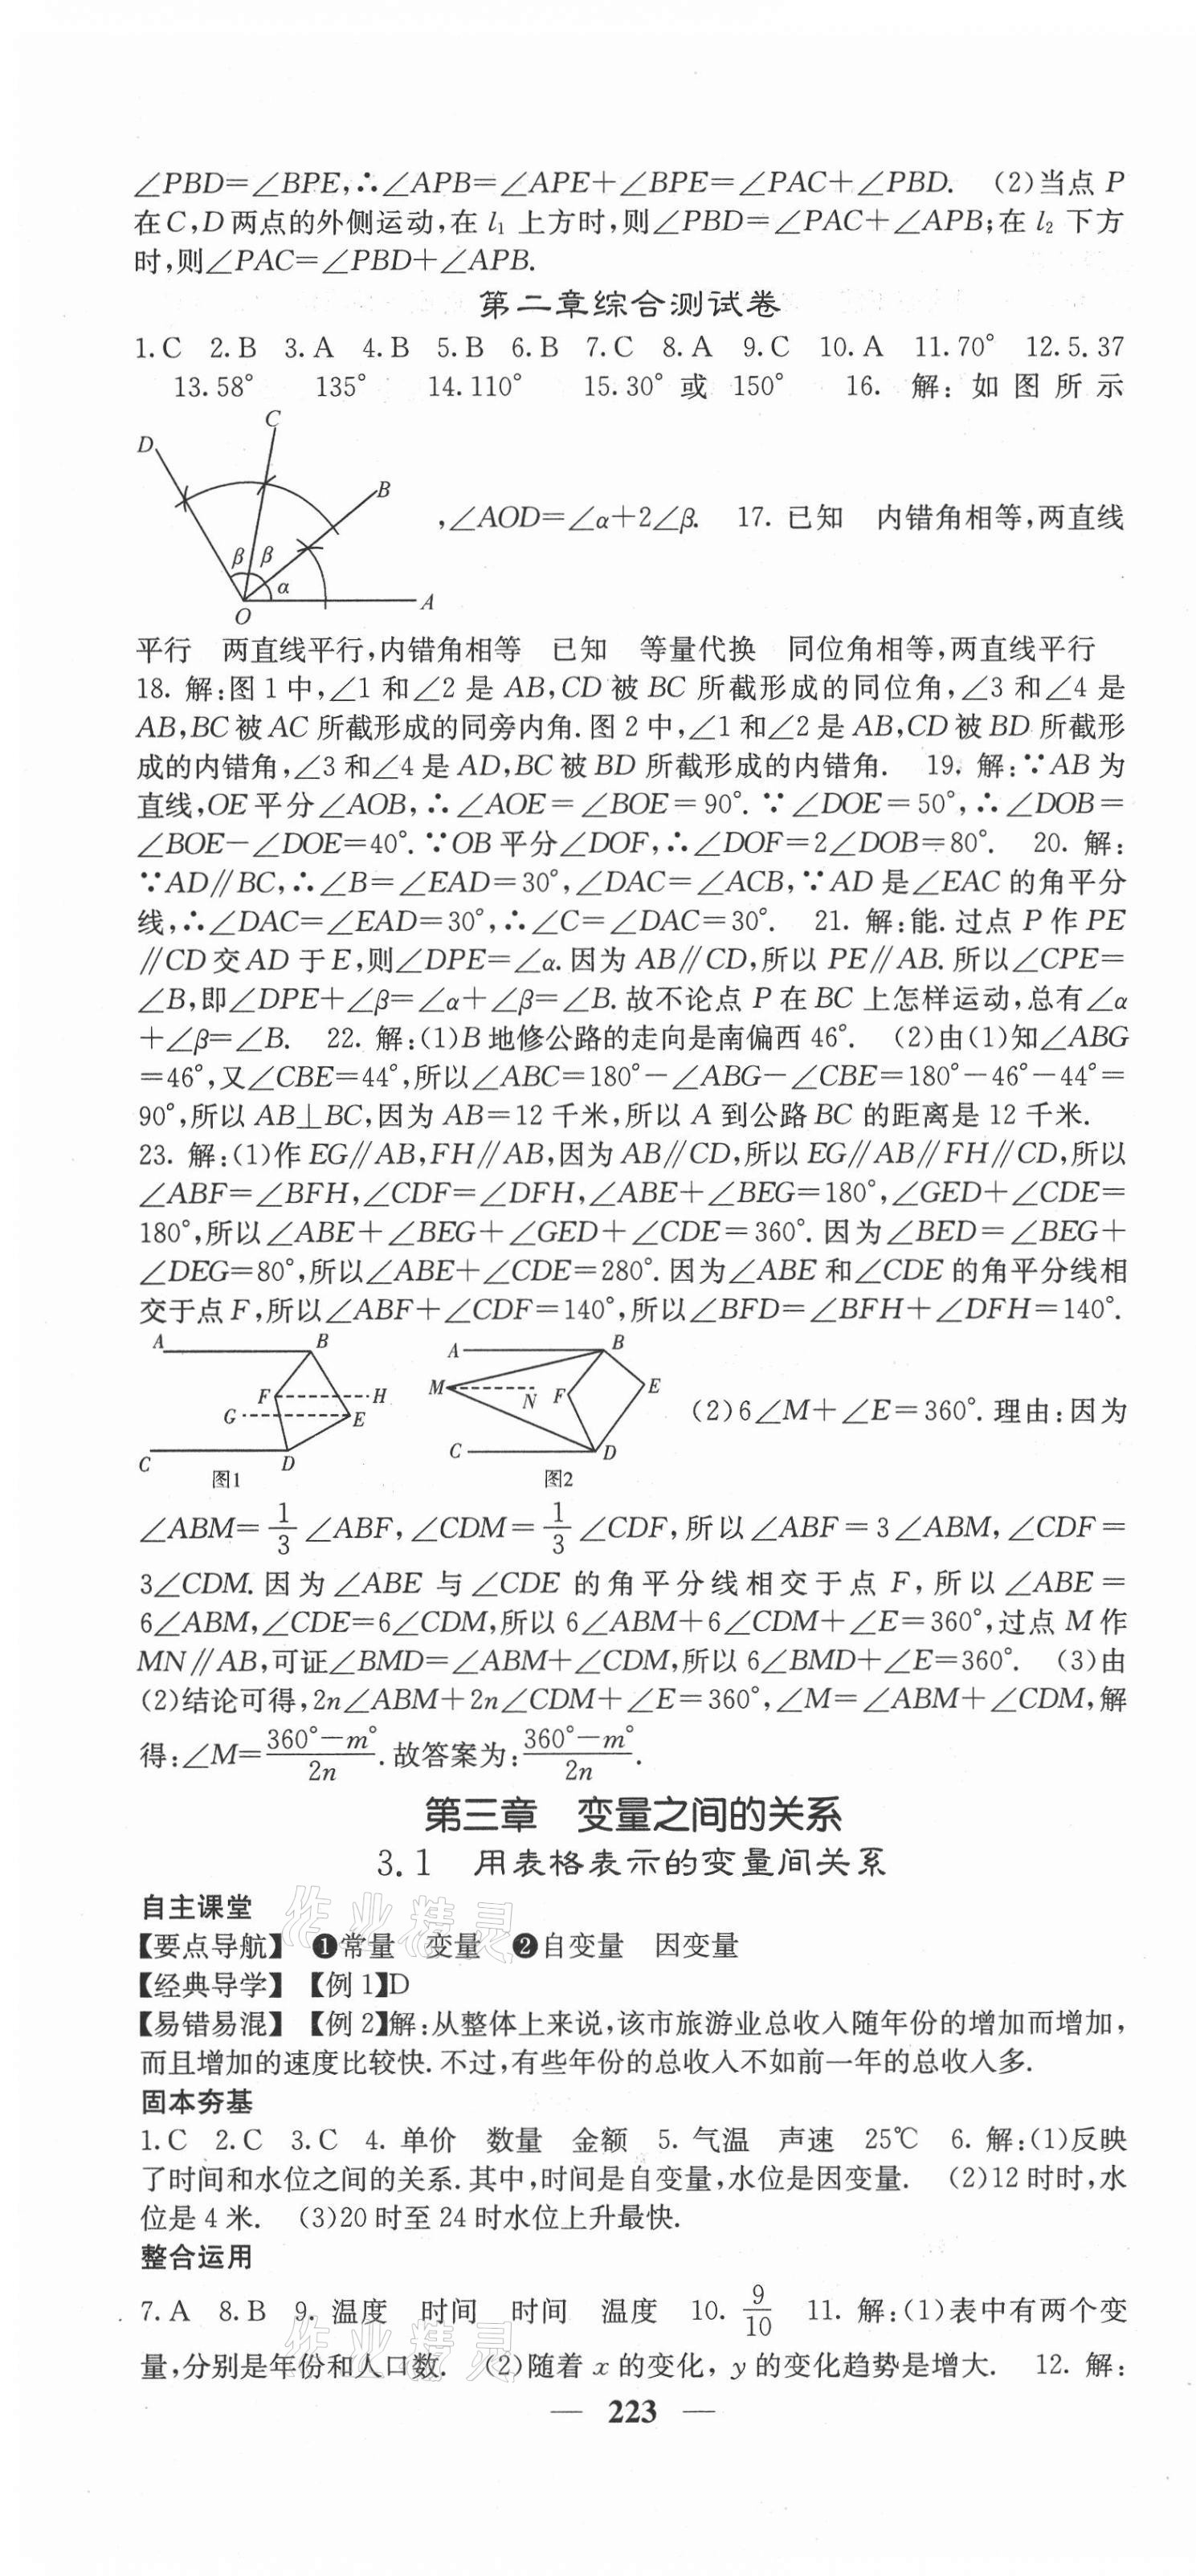 ∠PBD=∠BPE,∴∠APB=∠APE+∠BPE=∠PAC+∠PBD. (2)当点 P
在 C,D 两点的外侧运动,在 l₁ 上方时,则∠PBD=∠PAC+∠APB;在 l₂ 下方
时,则∠PAC=∠PBD+∠APB.
第二章综合测试卷
1.C 2.B 3.A 4.B 5.B 6.B 7.C 8.A 9.C 10.A 11.70° 12.5.37
13.58° 135° 14.110° 15.30° 或 150° 16. 解: 如图所示
D C B β β α O A
,∠AOD=∠α+2∠β. 17. 已知 内错角相等,两直线
平行 两直线平行,内错角相等 已知 等量代换 同位角相等,两直线平行
18. 解:图 1 中,∠1 和∠2 是 AB,CD 被 BC 所截形成的同位角,∠3 和∠4 是
AB,BC 被 AC 所截形成的同旁内角. 图 2 中,∠1 和∠2 是 AB,CD 被 BD 所截形
成的内错角,∠3 和∠4 是 AD,BC 被 BD 所截形成的内错角. 19. 解:∵AB 为
直线,OE 平分∠AOB,∴∠AOE=∠BOE=90°. ∵∠DOE=50°,∴∠DOB=
∠BOE-∠DOE=40°. ∵OB 平分∠DOF,∴∠DOF=2∠DOB=80°. 20. 解:
∵AD∥BC,∴∠B=∠EAD=30°,∠DAC=∠ACB,∵AD 是∠EAC 的角平分
线,∴∠DAC=∠EAD=30°,∴∠C=∠DAC=30°. 21. 解:能. 过点 P 作 PE
∥CD 交 AD 于 E,则∠DPE=∠α. 因为 AB∥CD,所以 PE∥AB. 所以∠CPE=
∠B,即∠DPE+∠β=∠α+∠β=∠B. 故不论点 P 在 BC 上怎样运动,总有∠α
+∠β=∠B. 22. 解:(1)B 地修公路的走向是南偏西 46°. (2)由(1)知∠ABG
=46°,又∠CBE=44°,所以∠ABC=180°-∠ABG-∠CBE=180°-46°-44°=
90°,所以 AB⊥BC,因为 AB=12 千米,所以 A 到公路 BC 的距离是 12 千米.
23. 解:(1)作 EG∥AB,FH∥AB,因为 AB∥CD,所以 EG∥AB∥FH∥CD,所以
∠ABF=∠BFH,∠CDF=∠DFH,∠ABE+∠BEG=180°,∠GED+∠CDE=
180°,所以∠ABE+∠BEG+∠GED+∠CDE=360°. 因为∠BED=∠BEG+
∠DEG=80°,所以∠ABE+∠CDE=280°. 因为∠ABE 和∠CDE 的角平分线相
交于点 F,所以∠ABF+∠CDF=140°,所以∠BFD=∠BFH+∠DFH=140°.
A B F H G E C D 图1
A B M N F E C D 图2
(2)6∠M+∠E=360°. 理由:因为
∠ABM=1/3∠ABF,∠CDM=1/3∠CDF,所以∠ABF=3∠ABM,∠CDF=
3∠CDM. 因为∠ABE 与∠CDE 的角平分线相交于点 F,所以∠ABE=
6∠ABM,∠CDE=6∠CDM,所以 6∠ABM+6∠CDM+∠E=360°,过点 M 作
MN∥AB,可证∠BMD=∠ABM+∠CDM,所以 6∠BMD+∠E=360°. (3)由
(2)结论可得,2n∠ABM+2n∠CDM+∠E=360°,∠M=∠ABM+∠CDM,解
得:∠M=(360°-m°)/2n. 故答案为:(360°-m°)/2n.
第三章 变量之间的关系
3.1 用表格表示的变量间关系
自主课堂
【要点导航】 ❶常量 变量 ❷自变量 因变量
【经典导学】 【例 1】D
【易错易混】 【例 2】解:从整体上来说,该市旅游业总收入随年份的增加而增加,
而且增加的速度比较快. 不过,有些年份的总收入不如前一年的总收入多.
固本夯基
1.C 2.C 3.C 4. 单价 数量 金额 5. 气温 声速 25℃ 6. 解:(1)反映
了时间和水位之间的关系. 其中,时间是自变量,水位是因变量. (2)12 时时,水
位是 4 米. (3)20 时至 24 时水位上升最快.
整合运用
7.A 8.B 9. 温度 时间 时间 温度 10. 9/10 11. 解:(1)表中有两个变
量,分别是年份和人口数. (2)随着 x 的变化, y 的变化趋势是增大. 12. 解:
— 223 —
作业精灵
作业精灵